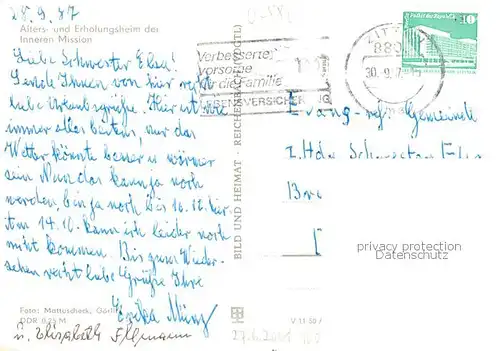 28.9.87
Alters- und Erholungsheim der
Inneren Mission
Liebe Schwester Elsa!
Sende Ihnen von hier recht
liebe Urlaubsgrüße. Hier ist wie
immer alles bestens, nur das
Wetter könnte besser u. wärmer
sein. Nun das kann ja noch
werden bin ja noch bis 10.10. hier.
Am 14.10. kann ich leider noch
nicht kommen. Bis zum Wieder-
sehen recht liebe Grüße Ihre
Erika
u. Elisabeth
Foto: Mattuscheck, Görlitz
DDR 0,25 M
BILD UND HEIMAT · REICHENBACH (VOGTL)
V 11 50
Verbesserte
vorsorge
die Familie
LEBENSVERSICHERUNG
ZITTAU
880
30.9.87
10
Evang.-ref. Gemeinde
z. Hd. Schwester
privacy protection
Datenschutz